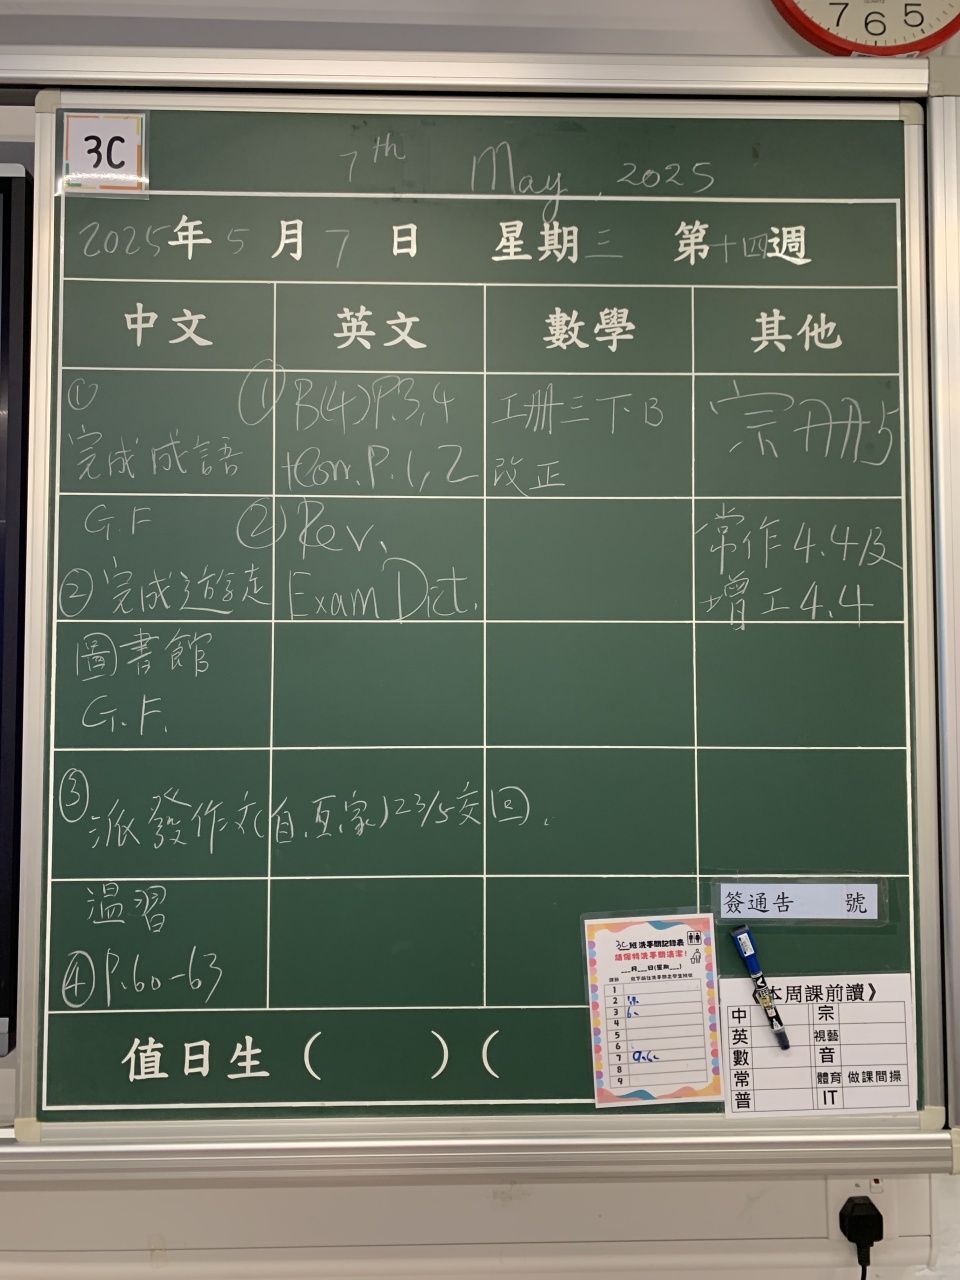 7 6 5
3C
7th May, 2025
2025年5月7日 星期三 第十四週
中文 英文 數學 其他
①
完成成語
G.F
②完成遊走
圖書館
G.F.
③
派發作文(自.互.家)23/5交回.
溫習
④P.60-63
① B(4)P.3,4
+Corr. P.1,2
② Rev.
Exam Dict.
工册三下B
改正
宗册5
常作4.4及
增工4.4
簽通告 號
值日生( )(
3C班洗手間記錄表
請保持洗手間清潔!
__月__日(星期__)
1
2
3
4
5
6
7
8
9
《本周課前讀》
中 宗
英 視藝
數 音
常 體育 做課間操
普 IT